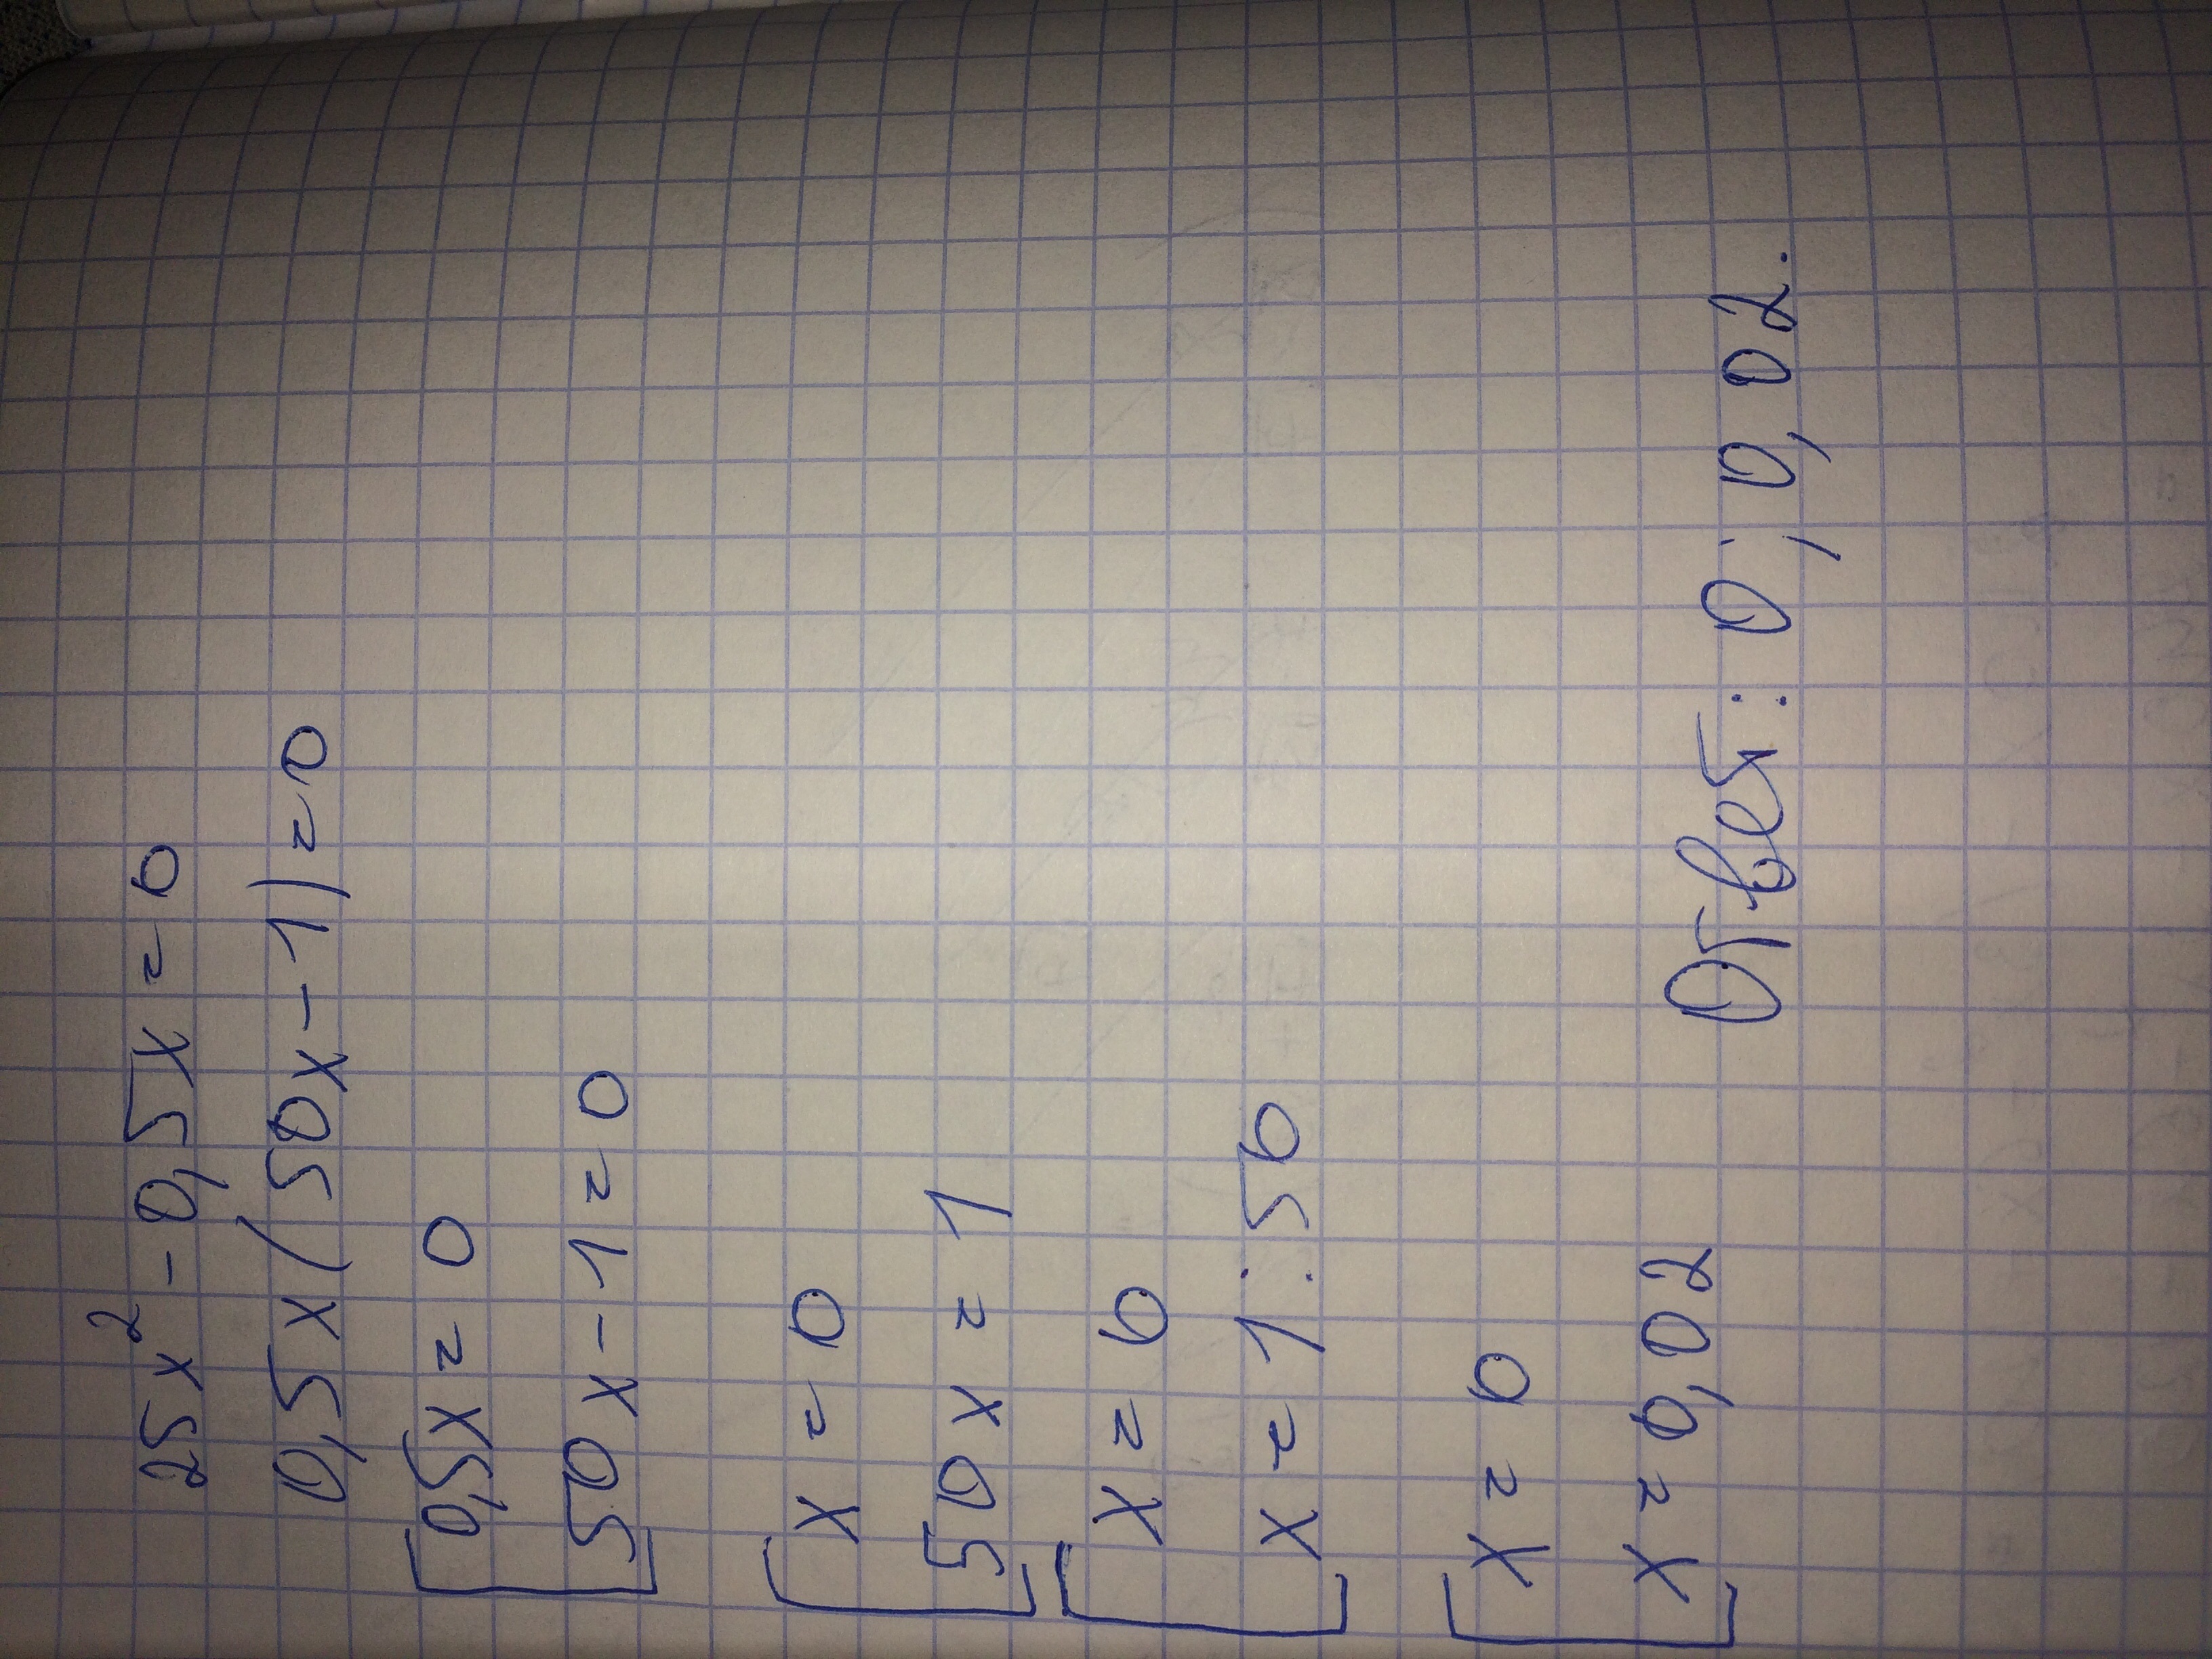 25x² - 0,5x = 0
0,5x(50x-1)=0
0,5x = 0
50x-1=0
x = 0
50x = 1
x = 0
x = 1:50
x = 0
x = 0,02
Ответ: 0; 0,02.